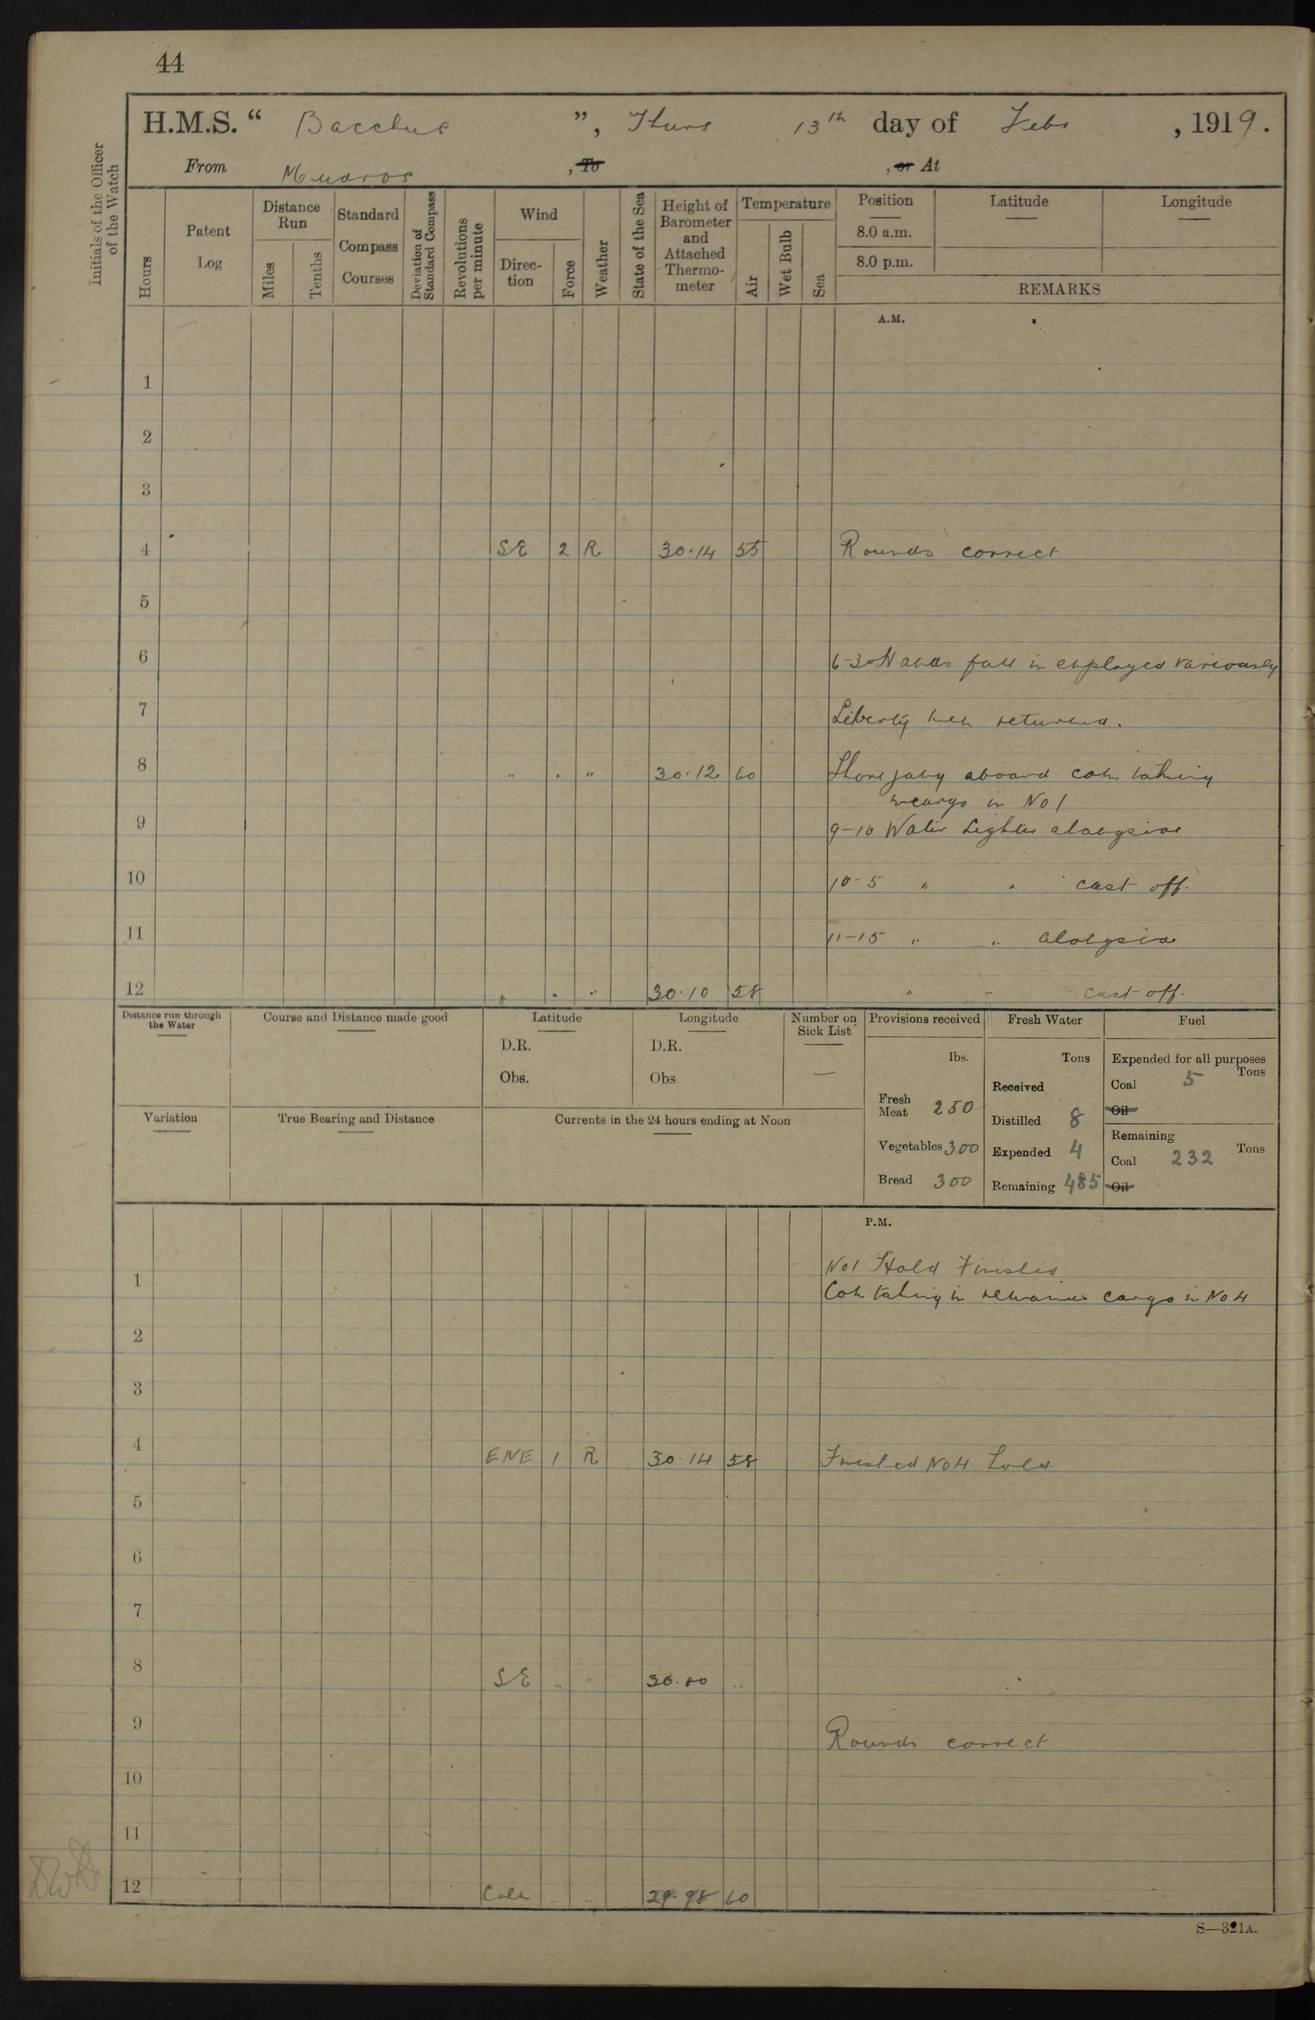 44
H.M.S. " Bacchus ", Thurs 13th day of Feb , 1919.
From Mudros , To , or At
Initials of the Officer of the Watch
Hours
Patent Log
Distance Run
Miles
Tenths
Standard Compass Courses
Deviation of Standard Compass
Revolutions per minute
Wind
Direction
Force
Weather
State of the Sea
Height of Barometer and Attached Thermometer
Temperature
Air
Wet Bulb
Sea
Position
8.0 a.m.
8.0 p.m.
Latitude
Longitude
REMARKS
A.M.
1
2
3
4 SE 2 R 30.14 55 Rounds correct
5
6 6-30 Hands fall in employed variously
7 Liberty men returned.
8 " " " 30.12 60 aboard com taking
cargo in No 1
9 9-10 Water Lighter alongside
10 10-5 " " cast off.
11 11-15 " " alongside
12 " " " 30.10 58 " " cast off.
Distance run through the Water
Course and Distance made good
Latitude
D.R.
Obs.
Longitude
D.R.
Obs
Number on Sick List
—
Provisions received
lbs.
Fresh Meat 250
Vegetables 300
Bread 300
Fresh Water
Tons
Received
Distilled 8
Expended 4
Remaining 485
Fuel
Expended for all purposes
Tons
Coal 5
Oil
Remaining
Tons
Coal 232
Oil
Variation
True Bearing and Distance
Currents in the 24 hours ending at Noon
P.M.
No 1 Hold Finished
1
Com taking in cargo in No 4
2
3
4 ENE 1 R 30.14 58 Finished No 4 hold
5
6
7
8 SE " " "
9 Rounds correct
10
11
12 Calm " " 29.98 60
S—321A.